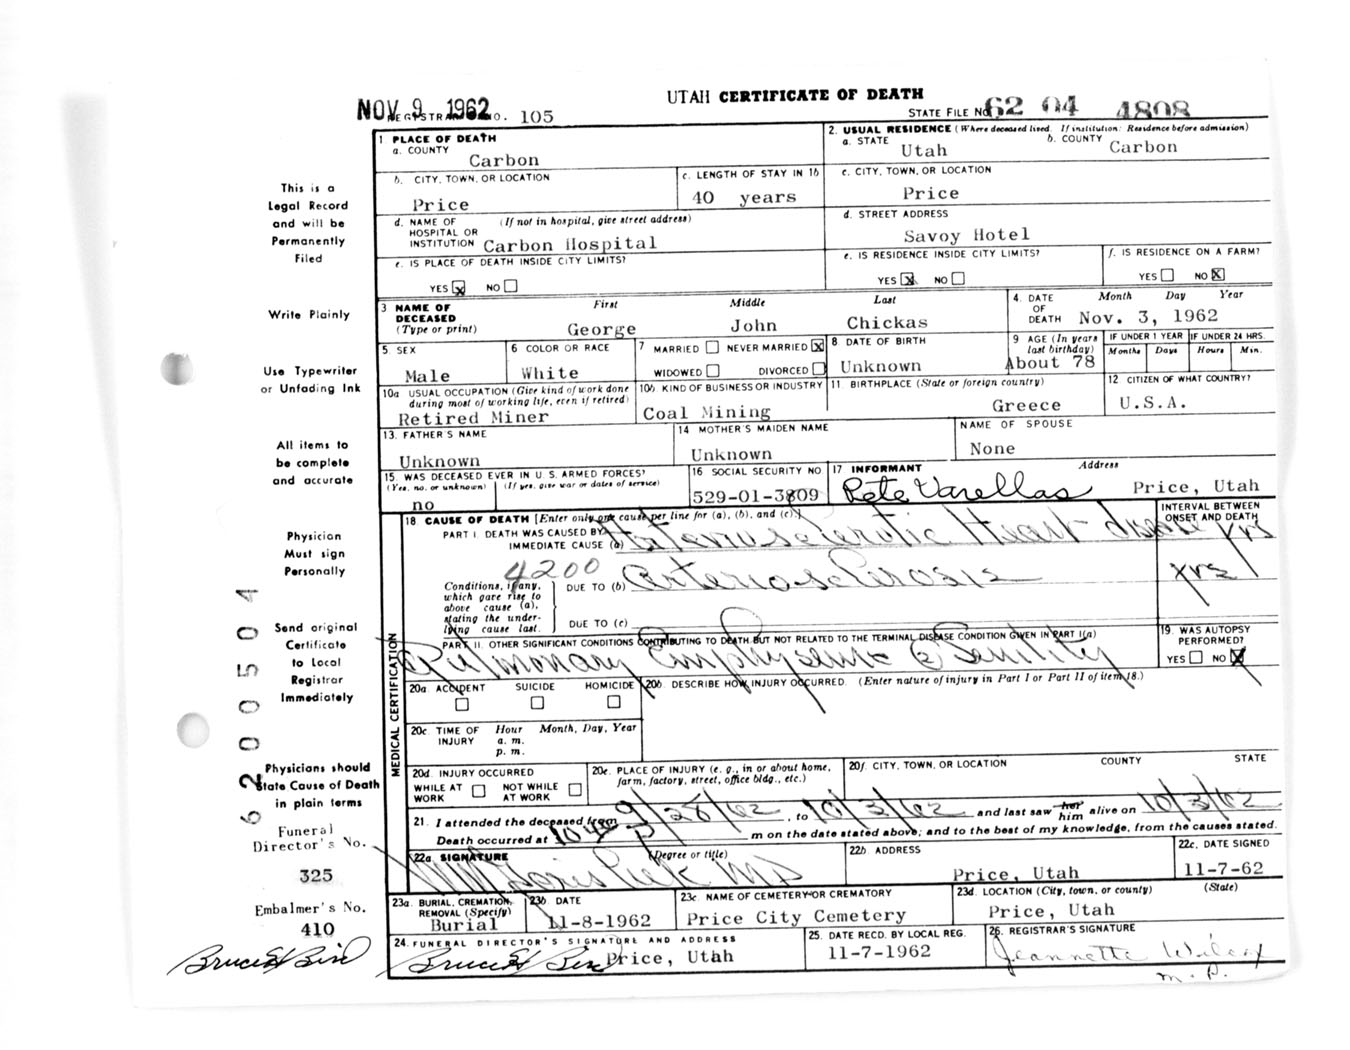 UTAH CERTIFICATE OF DEATH
NOV 9 1962
REGISTRAR'S NO. 105
STATE FILE NO. 62 04 4808
1 PLACE OF DEATH
a. COUNTY
Carbon
2. USUAL RESIDENCE (Where deceased lived. If institution: Residence before admission)
a. STATE Utah b. COUNTY Carbon
b. CITY, TOWN, OR LOCATION
Price
c. LENGTH OF STAY IN 1b
40 years
c. CITY, TOWN, OR LOCATION
Price
d. NAME OF HOSPITAL OR INSTITUTION (If not in hospital, give street address)
Carbon Hospital
d. STREET ADDRESS
Savoy Hotel
e. IS PLACE OF DEATH INSIDE CITY LIMITS?
YES x NO
e. IS RESIDENCE INSIDE CITY LIMITS?
YES x NO
f. IS RESIDENCE ON A FARM?
YES NO x
3 NAME OF DECEASED (Type or print)
First Middle Last
George John Chickas
4. DATE OF DEATH Month Day Year
Nov. 3, 1962
5 SEX
Male
6 COLOR OR RACE
White
7 MARRIED NEVER MARRIED x
WIDOWED DIVORCED
8 DATE OF BIRTH
Unknown
9 AGE (In years last birthday)
About 78
IF UNDER 1 YEAR
Months Days
IF UNDER 24 HRS.
Hours Min.
10a USUAL OCCUPATION (Give kind of work done during most of working life, even if retired)
Retired Miner
10b KIND OF BUSINESS OR INDUSTRY
Coal Mining
11. BIRTHPLACE (State or foreign country)
Greece
12 CITIZEN OF WHAT COUNTRY?
U.S.A.
13. FATHER'S NAME
Unknown
14 MOTHER'S MAIDEN NAME
Unknown
NAME OF SPOUSE
None
15 WAS DECEASED EVER IN U. S. ARMED FORCES?
(Yes, no, or unknown) (If yes, give war or dates of service)
no
16 SOCIAL SECURITY NO.
529-01-3809
17 INFORMANT Address
Pete Varellas Price, Utah
18 CAUSE OF DEATH [Enter only one cause per line for (a), (b), and (c).]
INTERVAL BETWEEN ONSET AND DEATH
PART I. DEATH WAS CAUSED BY:
IMMEDIATE CAUSE (a) Arteriosclerotic Heart disease yrs
4200
Conditions, if any, which gave rise to above cause (a), stating the underlying cause last.
DUE TO (b) Arteriosclerosis yrs
DUE TO (c)
PART II. OTHER SIGNIFICANT CONDITIONS CONTRIBUTING TO DEATH BUT NOT RELATED TO THE TERMINAL DISEASE CONDITION GIVEN IN PART I(a)
Pulmonary Emphysema Senility
19. WAS AUTOPSY PERFORMED?
YES NO x
MEDICAL CERTIFICATION
20a. ACCIDENT SUICIDE HOMICIDE
20b. DESCRIBE HOW INJURY OCCURRED. (Enter nature of injury in Part I or Part II of item 18.)
20c TIME OF INJURY Hour Month, Day, Year
a. m.
p. m.
20d. INJURY OCCURRED
WHILE AT WORK NOT WHILE AT WORK
20e. PLACE OF INJURY (e. g., in or about home, farm, factory, street, office bldg., etc.)
20f. CITY, TOWN, OR LOCATION COUNTY STATE
21. I attended the deceased from 9/28/62, to 10/3/62 and last saw her him alive on 10/3/62
Death occurred at m on the date stated above; and to the best of my knowledge, from the causes stated.
22a. SIGNATURE (Degree or title)
MD
22b. ADDRESS
Price, Utah
22c. DATE SIGNED
11-7-62
23a. BURIAL, CREMATION, REMOVAL (Specify)
Burial
23b. DATE
11-8-1962
23c. NAME OF CEMETERY OR CREMATORY
Price City Cemetery
23d. LOCATION (City, town, or county) (State)
Price, Utah
24. FUNERAL DIRECTOR'S SIGNATURE AND ADDRESS
Price, Utah
25. DATE RECD. BY LOCAL REG.
11-7-1962
26. REGISTRAR'S SIGNATURE
Jeannette Wilcox
m. P.
This is a
Legal Record
and will be
Permanently
Filed
Write Plainly
Use Typewriter
or Unfading Ink
All items to
be complete
and accurate
Physician
Must sign
Personally
Send original
Certificate
to Local
Registrar
Immediately
Physicians should
State Cause of Death
in plain terms
Funeral
Director's No.
325
Embalmer's No.
410
62 00504